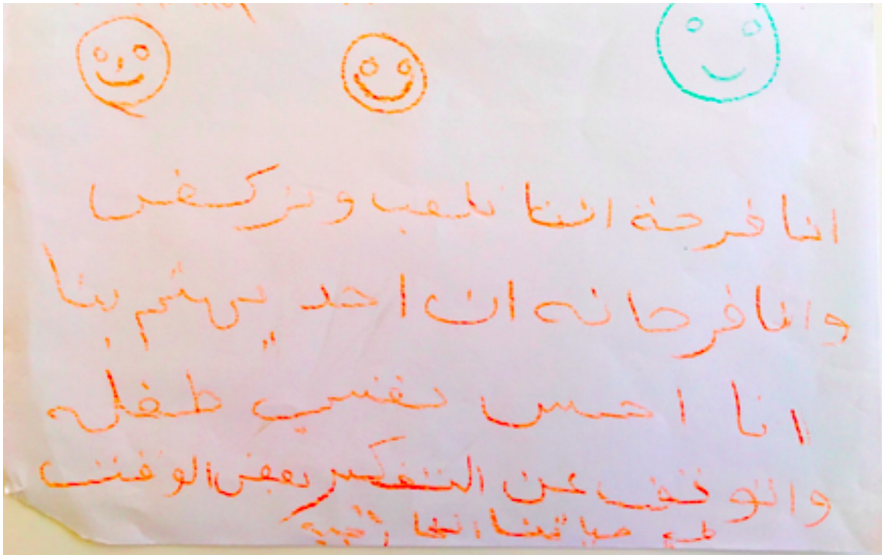 انا فرحة اننا نلعب ونركض
وانا فرحانه ان احد يهتم بنا
انا احس نفسي طفله
واتوقف عن التفكير بعض الوقت
حياتنا انها